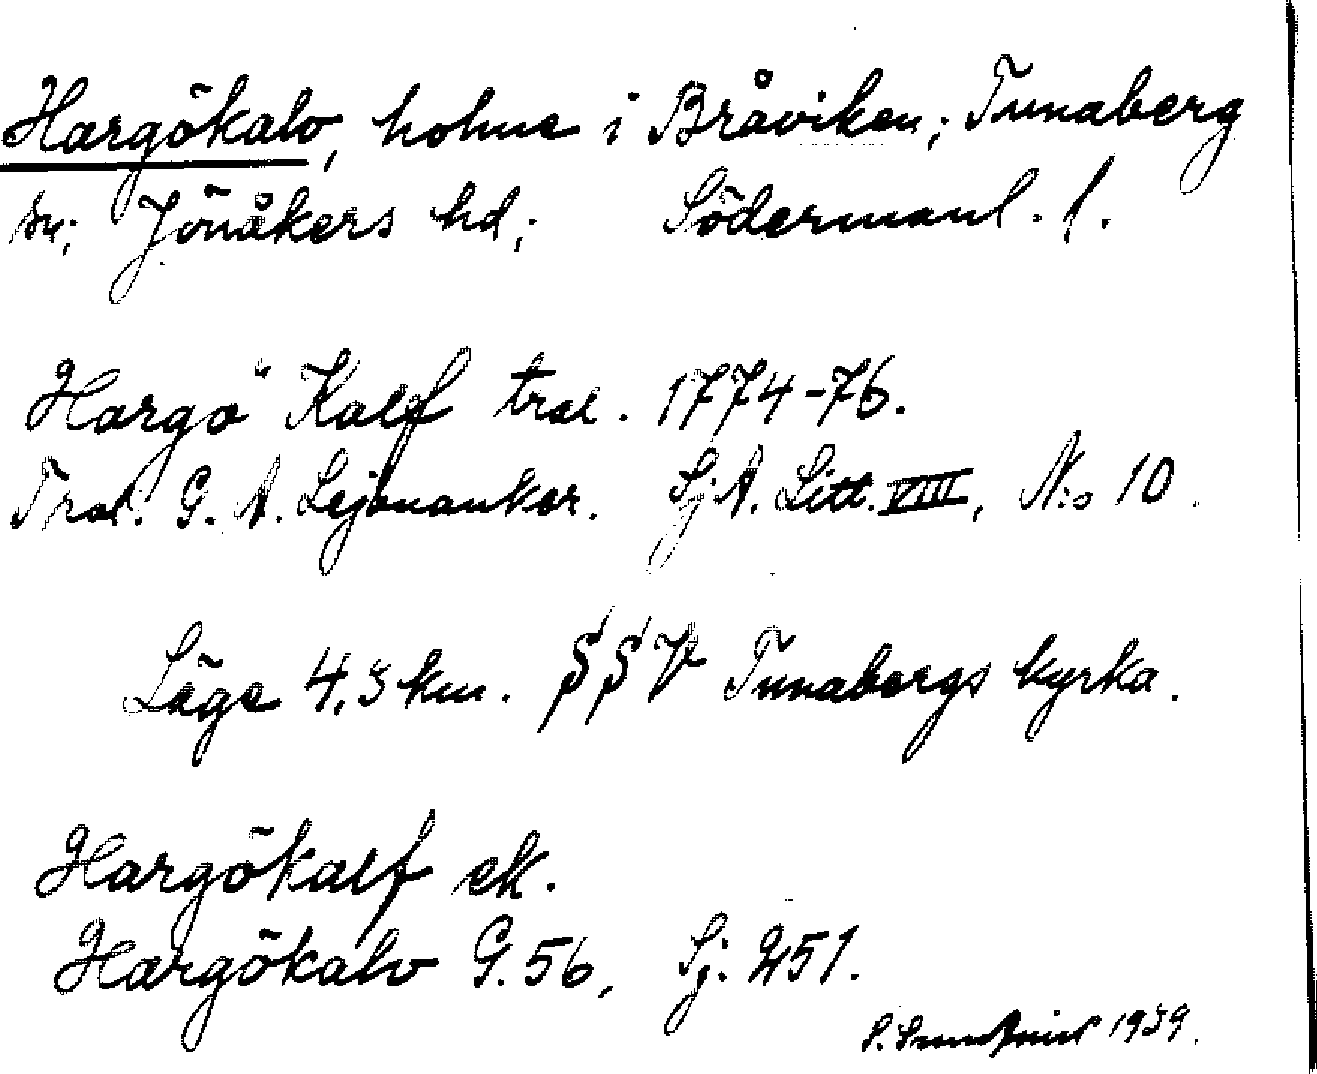 Hargökalv, holme i Bråviken; Tunaberg
sn; Jönåkers hd; Södermanl. l.
Hargö Kalf tral. 1774-76.
Tral. G. A. Lejonankar. SjA. Litt. VIII, N:o 10.
Läge 4,5 km. SSV Tunabergs kyrka.
Hargökalf ek.
Hargökalv G. 56, Sj. 251.
S. 1939.